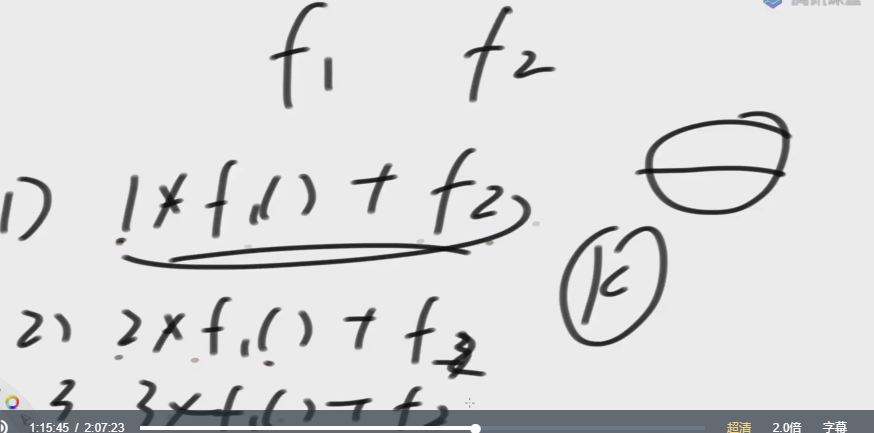 腾讯课堂
f1 f2
1) 1×f1() + f2
K
2) 2×f1() + f2
3 3×f1() + f2
1:15:45 / 2:07:23 超清 2.0倍 字幕